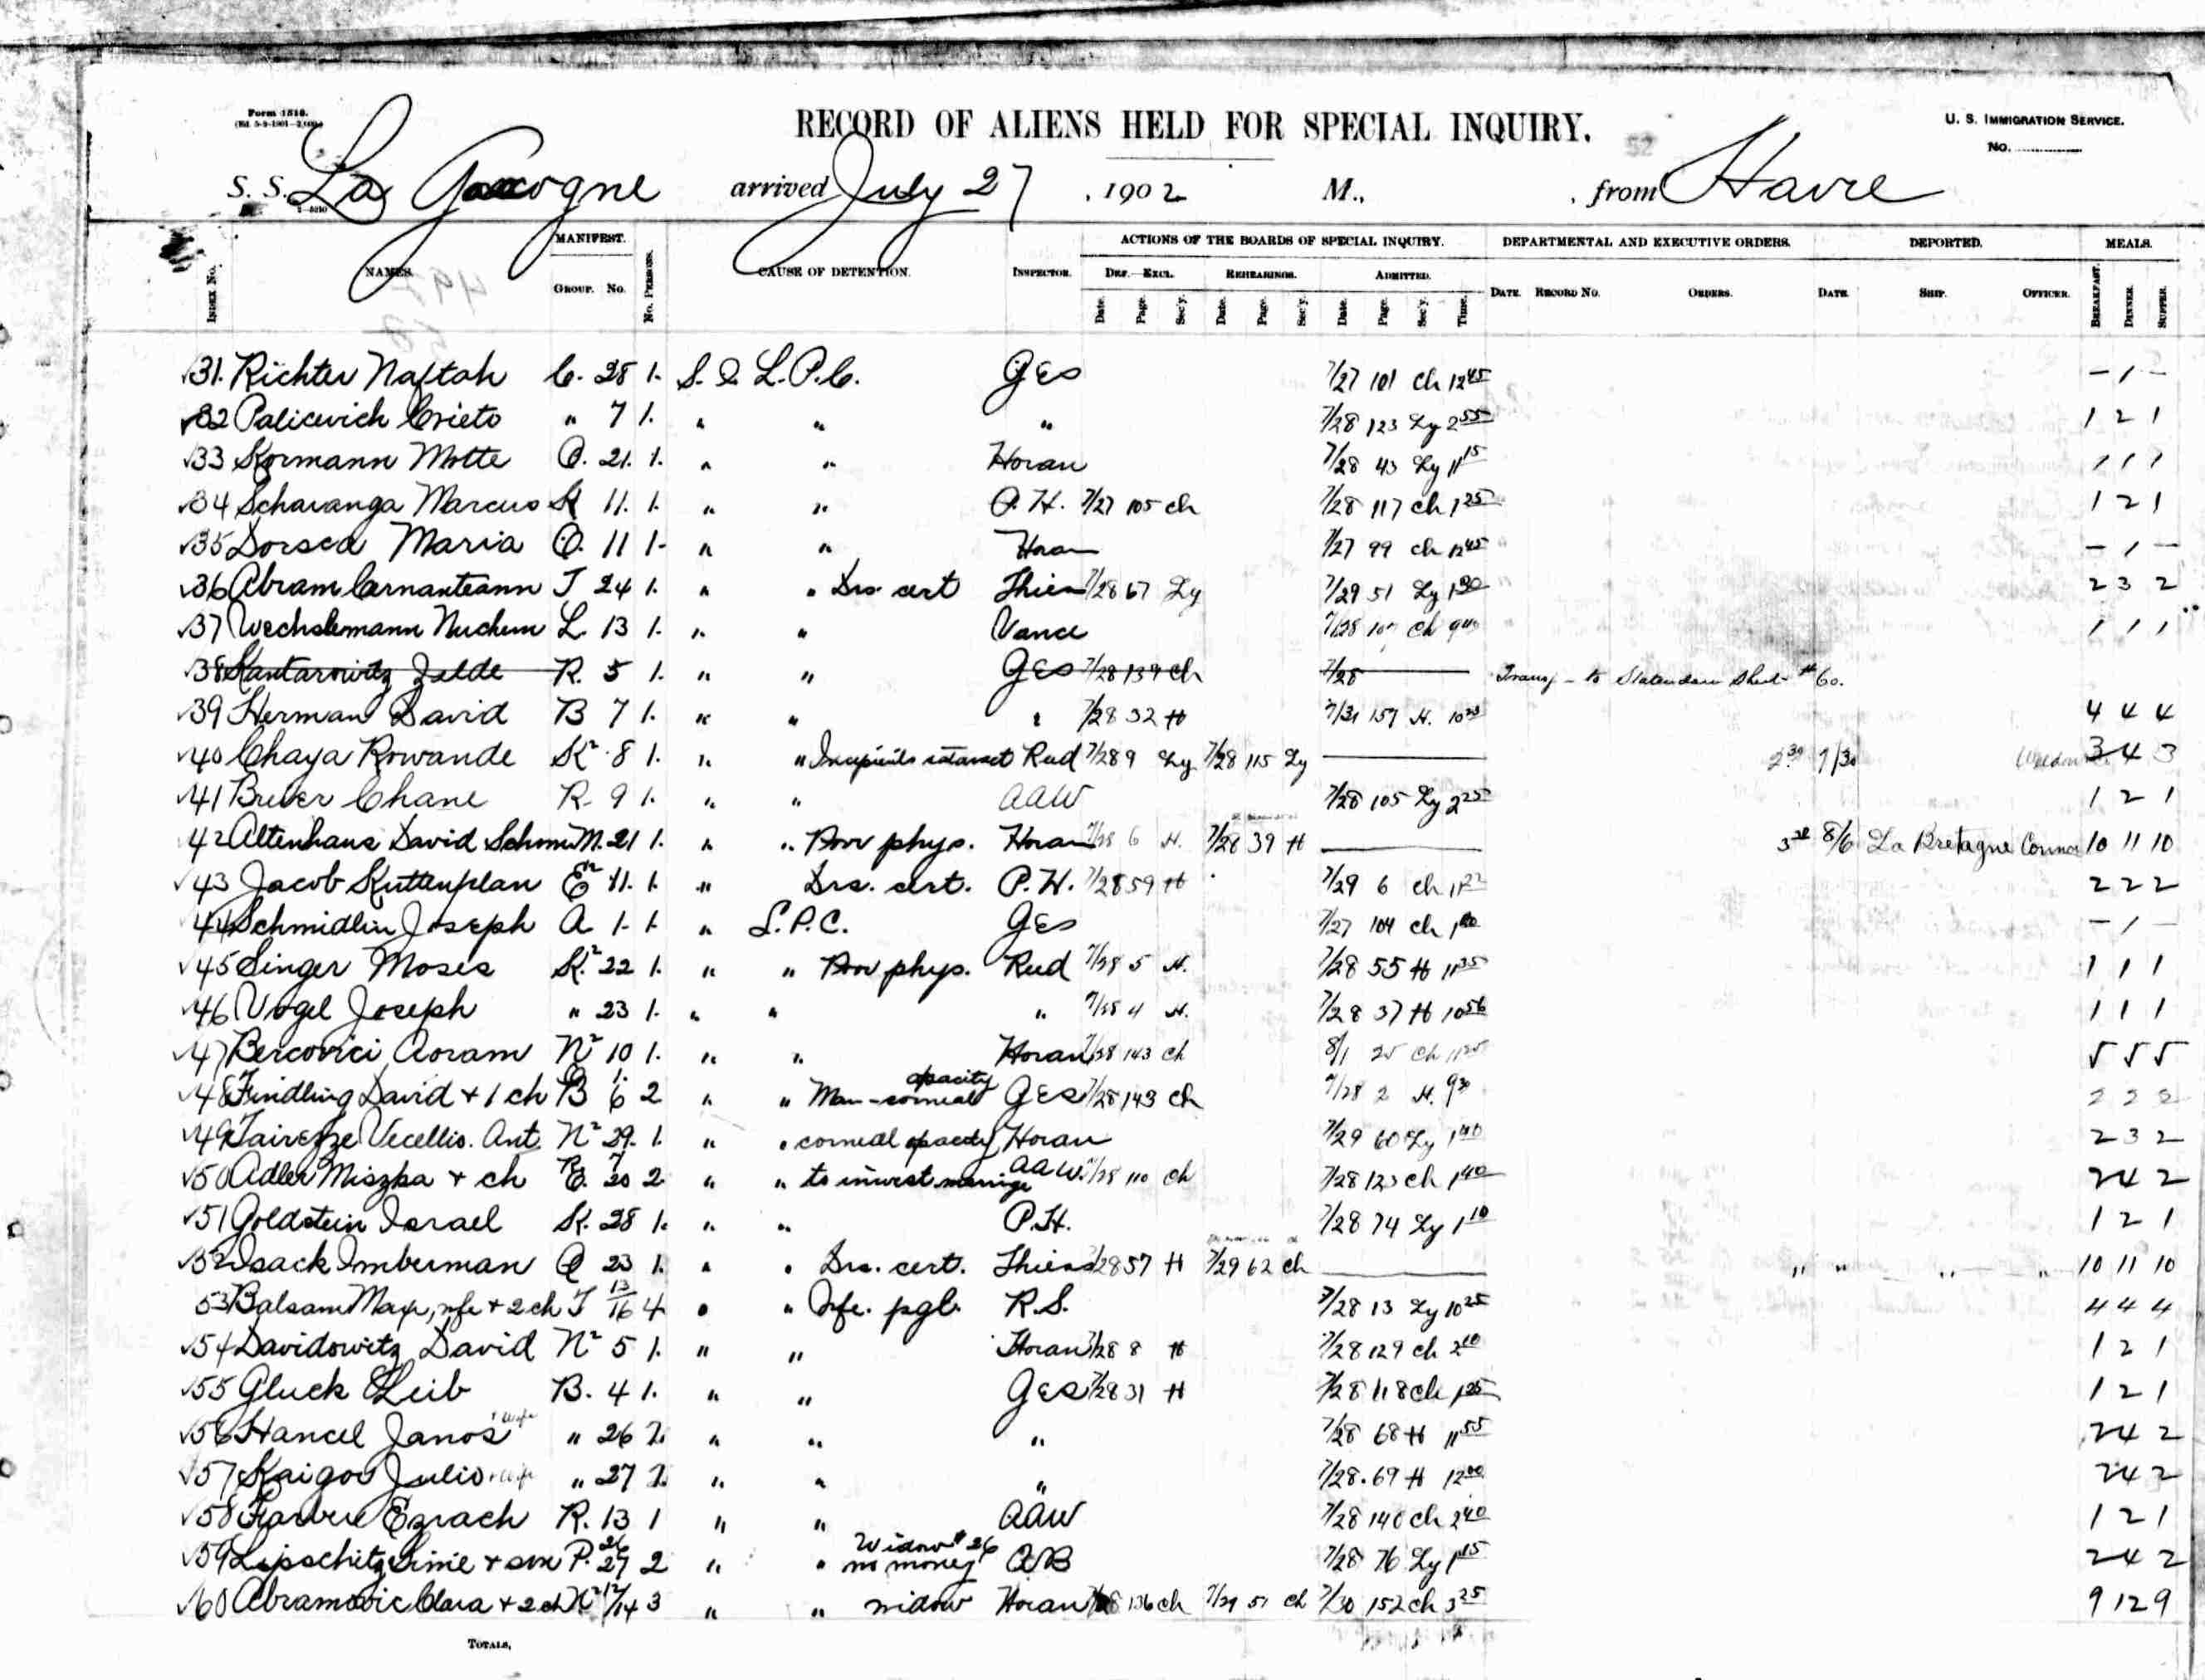 Form 1516.
(Ed. 5-9-1901—2,000.)
RECORD OF ALIENS HELD FOR SPECIAL INQUIRY.
52
U. S. IMMIGRATION SERVICE.
No.
S. S. La Gascogne arrived July 27, 1902 M., , from Havre
INDEX No. NAMES. MANIFEST. GROUP. No. No. PERSONS. CAUSE OF DETENTION. INSPECTOR. ACTIONS OF THE BOARDS OF SPECIAL INQUIRY. DEF.—EXCL. Date. Page. Sec'y. REHEARINGS. Date. Page. Sec'y. ADMITTED. Date. Page. Sec'y. Time. DEPARTMENTAL AND EXECUTIVE ORDERS. DATE. RECORD No. ORDERS. DEPORTED. DATE. SHIP. OFFICER. MEALS. BREAKFAST. DINNER. SUPPER.
31. Richter Naftah C. 28 1. S. I. L.P.C. GES 7/27 101 Ch 12 45 – 1 –
32 Palicevich Crieto " 7 1. " " " 7/28 123 Ly 2 55 1 2 1
33 Kormann Motte O. 21. 1. " " Horan 7/28 43 Ly 11 15 1 1 1
34 Schavanga Marcus K 11. 1. " " P. H. 7/27 105 Ch 7/28 117 Ch 1 25 1 2 1
35 Dorsca Maria O. 11 1. " " Horan 7/27 99 Ch 12 45 – 1 –
36 Abram Cernanteann J 24 1. " " Drs. cert 7/28 67 Ly 7/29 51 Ly 1 30 2 3 2
37 Wechslemann Nuchem L. 13 1. " " Vance 7/28 Ch 9 40 1 1 1
38 Kantarowitz Zelde R. 5 1. " " GES 7/28 139 Ch 7/28 Transf – to Statendam Sheet #60.
39 Herman David B 7 1. " " " 7/28 32 H 7/31 157 H. 4 4 4
40 Chaya Rowande K² 8 1. " " Rud 7/28 9 Ly 7/28 115 Ly 2 30 7/30 3 4 3
41 Breier Chane R. 9 1. " " AAW 7/28 105 Ly 2 25 1 2 1
42 Altenhaus David M. 21 1. " " Poor phys. Horan 7/28 6 H. 7/28 39 H 8/6 La Bretagne 10 11 10
43 Jacob Kuttenplan E² 11. 1. " Drs. cert. P. H. 7/28 59 H 7/29 6 Ch 2 2 2
44 Schmidlin Joseph A 1. 1. " L.P.C. GES 7/27 104 Ch – 1 –
45 Singer Moses K² 22 1. " " Poor phys. Rud 7/28 5 H. 7/28 55 H 11 35 1 1 1
46 Vogel Joseph " 23 1. " " " 7/28 4 H. 7/28 37 H 10 56 1 1 1
47 Bercovici Avram N² 10 1. " " Horan 7/28 143 Ch 8/1 25 Ch 5 5 5
48 Findling David + 1 ch B 6 2 " " Man – corneal opacity GES 7/28 143 Ch 7/28 2 H. 9 30 2 2 2
49 Vecellis. Ant. N² 29. 1. " " corneal opacity Horan 7/29 60 Ly 1 40 2 3 2
50 Adler Miszka + ch 2 " " to invest marriage AAW. 7/28 110 Ch 7/28 123 Ch 1 40 2 4 2
51 Goldstein Israel K. 28 1. " " P.H. 7/28 74 Ly 1 10 1 2 1
52 Isack Imberman 23 1. " " Drs. cert. 7/28 57 H 7/29 62 Ch " " " " 10 11 10
53 Balsam Max, wfe + 2 ch J 13/16 4 " " Wfe. pgt. R.S. 7/28 13 Ly 10 25 4 4 4
54 Davidowitz David N² 5 1. " " Horan 7/28 8 H 7/28 129 Ch 2 10 1 2 1
55 Gluck Leib B. 4 1. " " GES 7/28 31 H 7/28 118 Ch 1 25 1 2 1
56 Hancel Janos + wife " 26 2. " " " 7/28 68 H 11 55 2 4 2
57 Kaigov Julio + wife " 27 2. " " " 7/28 69 H 12 00 2 4 2
58 Ezrach R. 13 1 " " AAW 7/28 140 Ch 2 40 1 2 1
59 Lipschitz + son P. 26 27 2 " " Widow #26 no money 7/28 76 Ly 1 15 2 4 2
60 Abramovic Clara + 2 ch N² 12/14 3 " " widow Horan 7/28 136 Ch 7/29 51 Ch 7/30 152 Ch 3 25 9 12 9
TOTALS,